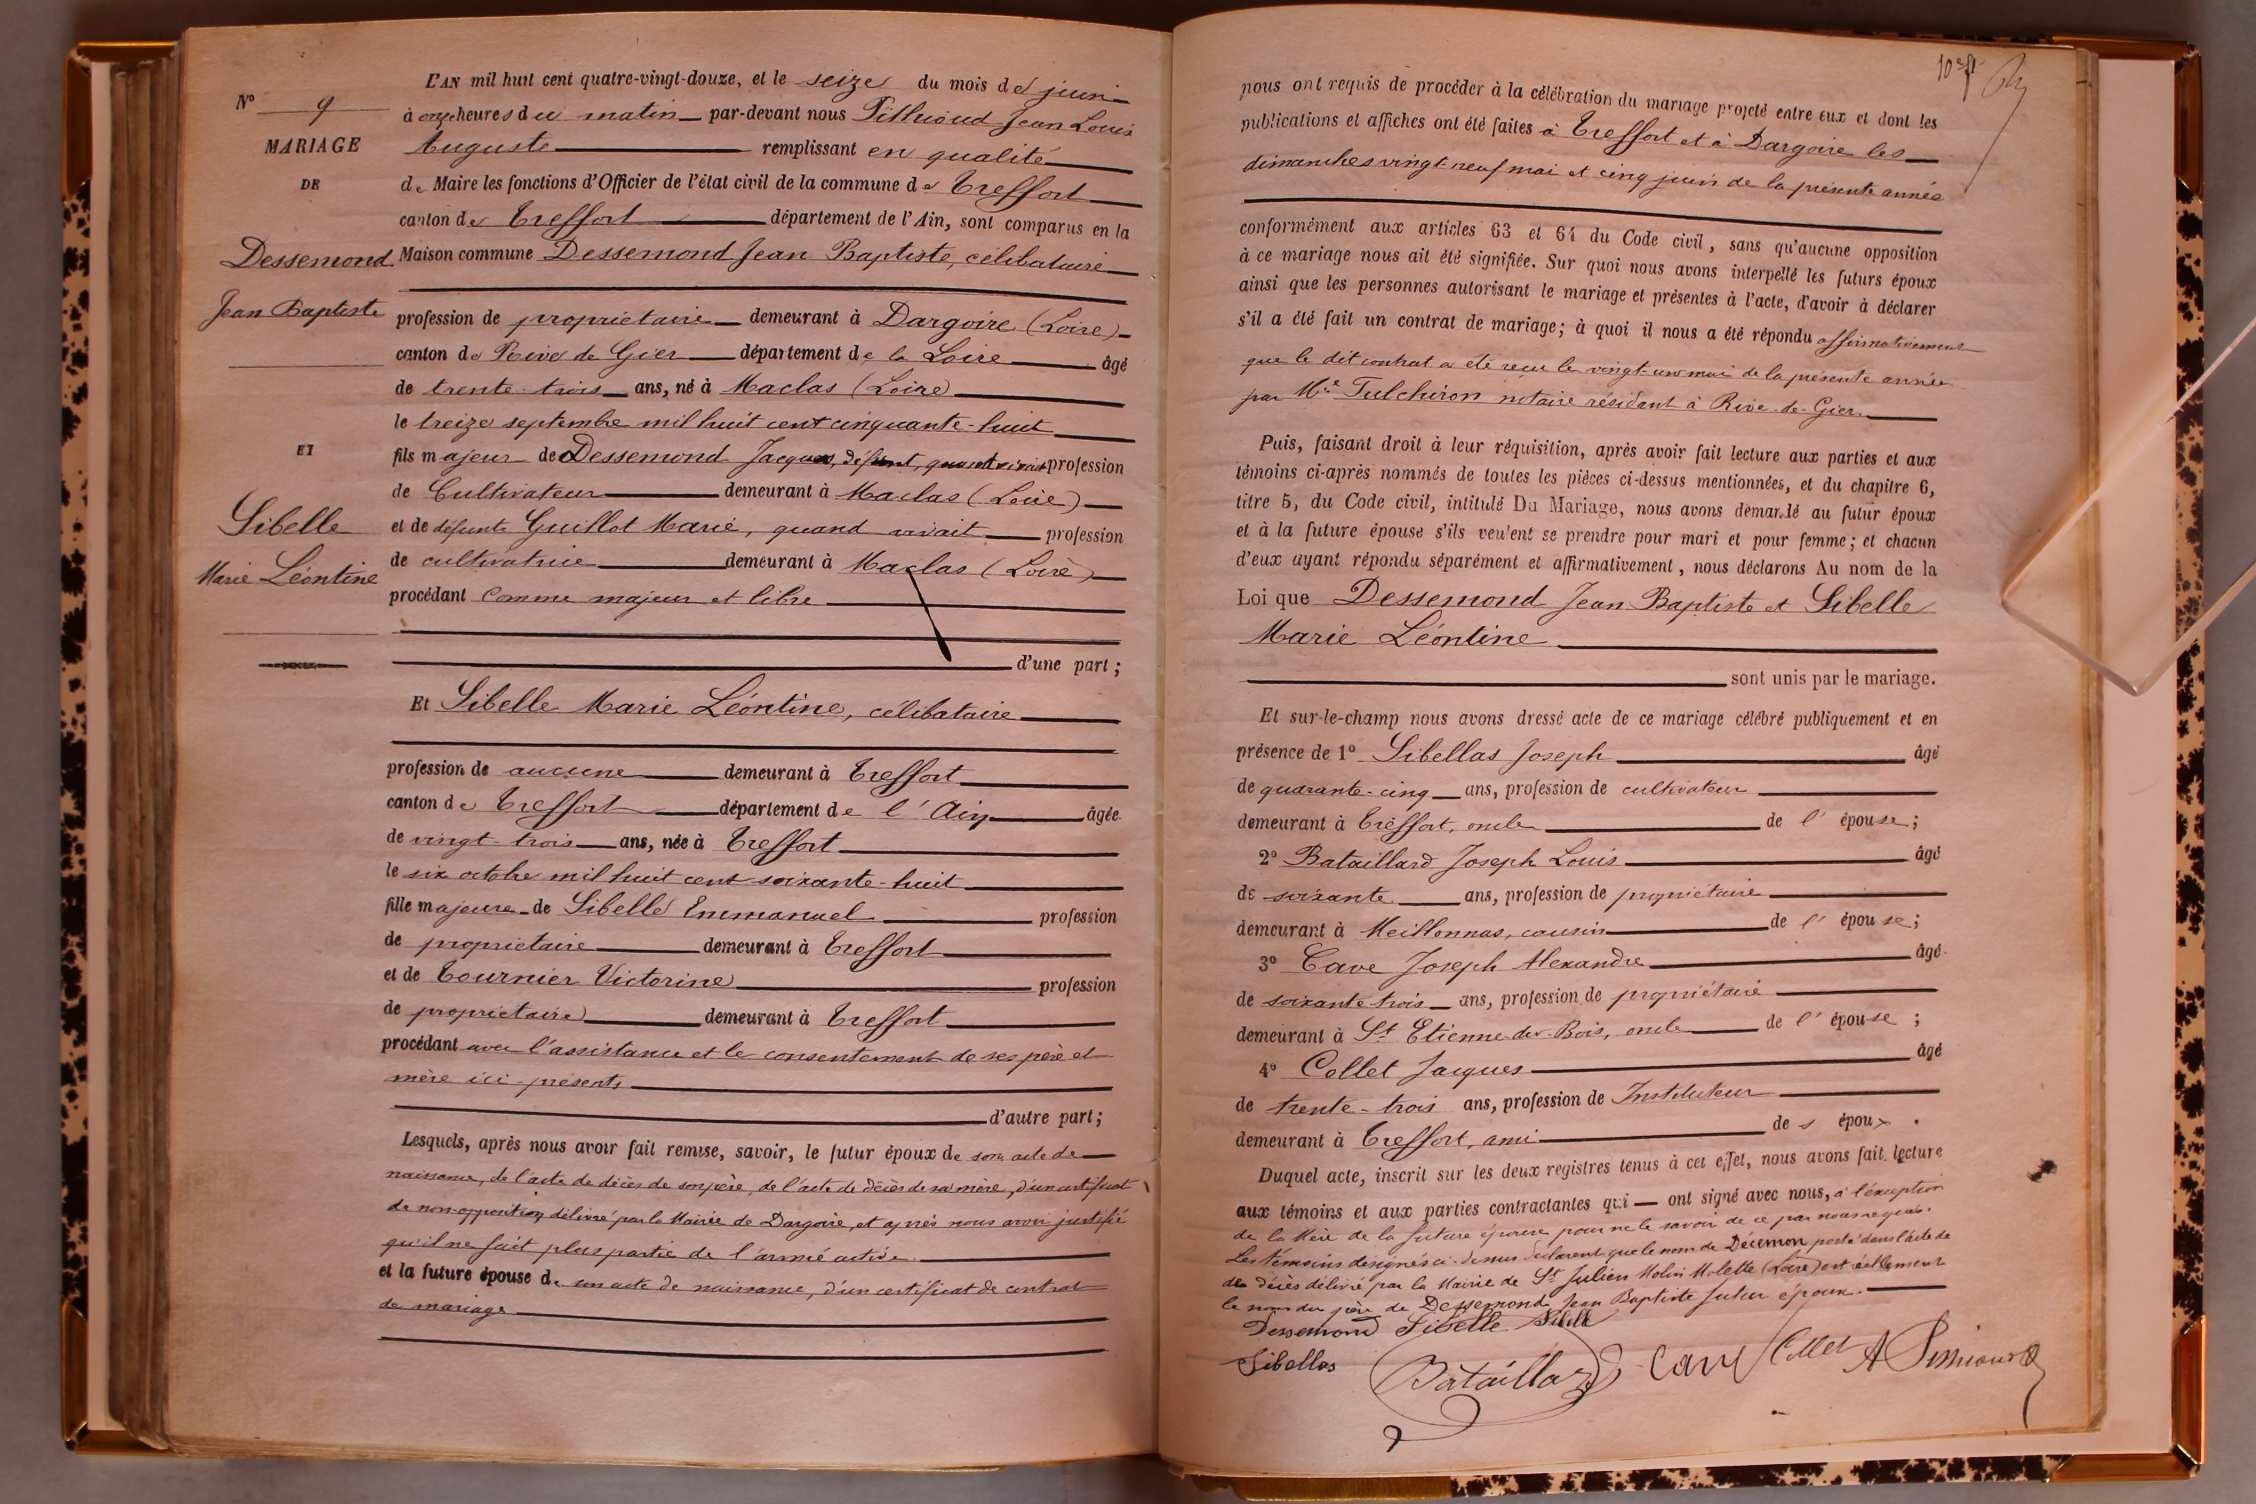 L'AN mil huit cent quatre-vingt-douze, et le seize du mois de juin
N° 9
à onze heures du matin par-devant nous Jean Louis
MARIAGE
Auguste remplissant en qualité
DE
de Maire les fonctions d'Officier de l'état civil de la commune de Treffort
canton de Treffort département de l'Ain, sont comparus en la
Dessemond
Maison commune Dessemond Jean Baptiste, célibataire
Jean Baptiste
profession de propriétaire demeurant à Dargoire (Loire)
canton de Rive de Gier département de la Loire âgé
de trente-trois ans, né à Maclas (Loire)
le treize septembre mil huit cent cinquante-huit
ET
fils majeur de Dessemond Jacques, défunt, quand vivait profession
de Cultivateur demeurant à Maclas (Loire)
Sibelle
et de défunte Guillot Marie, quand vivait profession
Marie Léontine
de cultivatrice demeurant à Maclas (Loire)
procédant comme majeur et libre
d'une part ;
Et Sibelle Marie Léontine, célibataire
profession de aucune demeurant à Treffort
canton de Treffort département de l'Ain âgée
de vingt-trois ans, née à Treffort
le six octobre mil huit cent soixante-huit
fille majeure de Sibelle Emmanuel profession
de propriétaire demeurant à Treffort
et de Tournier Victorine profession
de propriétaire demeurant à Treffort
procédant avec l'assistance et le consentement de ses père et
mère ici présents
d'autre part ;
Lesquels, après nous avoir fait remise, savoir, le futur époux de son acte de
naissance, de l'acte de décès de son père, de l'acte de décès de sa mère, d'un certificat
de non-opposition délivré par la Mairie de Dargoire, et après nous avoir justifié
qu'il ne fait plus partie de l'armée active
et la future épouse de son acte de naissance, d'un certificat de contrat
de mariage
nous ont requis de procéder à la célébration du mariage projeté entre eux et dont les
publications et affiches ont été faites à Treffort et à Dargoire les
dimanches vingt-neuf mai et cinq juin de la présente année
conformément aux articles 63 et 64 du Code civil, sans qu'aucune opposition
à ce mariage nous ait été signifiée. Sur quoi nous avons interpellé les futurs époux
ainsi que les personnes autorisant le mariage et présentes à l'acte, d'avoir à déclarer
s'il a été fait un contrat de mariage ; à quoi il nous a été répondu affirmativement
que le dit contrat a été reçu le vingt-un mai de la présente année
par Me Tulchiron notaire résidant à Rive-de-Gier
Puis, faisant droit à leur réquisition, après avoir fait lecture aux parties et aux
témoins ci-après nommés de toutes les pièces ci-dessus mentionnées, et du chapitre 6,
titre 5, du Code civil, intitulé Du Mariage, nous avons demandé au futur époux
et à la future épouse s'ils veulent se prendre pour mari et pour femme ; et chacun
d'eux ayant répondu séparément et affirmativement, nous déclarons Au nom de la
Loi que Dessemond Jean Baptiste et Sibelle
Marie Léontine
sont unis par le mariage.
Et sur-le-champ nous avons dressé acte de ce mariage célébré publiquement et en
présence de 1° Sibellas Joseph âgé
de quarante-cinq ans, profession de cultivateur
demeurant à Treffort, oncle de l'épouse ;
2° Bataillard Joseph Louis âgé
de soixante ans, profession de propriétaire
demeurant à Meillonnas, cousin de l'épouse ;
3° Cave Joseph Alexandre âgé
de soixante-trois ans, profession de propriétaire
demeurant à St Etienne-du-Bois, oncle de l'épouse ;
4° Collet Jacques âgé
de trente-trois ans, profession de Instituteur
demeurant à Treffort, ami des époux.
Duquel acte, inscrit sur les deux registres tenus à cet effet, nous avons fait lecture
aux témoins et aux parties contractantes qui ont signé avec nous, à l'exception
de la Mère de la future épouse pour ne le savoir de ce par nous requis.
Les témoins désignés ci-dessus déclarent que le nom de Décemon porté dans l'acte de
de décès délivré par la Mairie de St Julien Molin Molette (Loire) est réellement
le nom du père de Dessemond Jean Baptiste futur époux.
Dessemond Sibelle Sibelle
Sibellas Bataillard Cave Collet